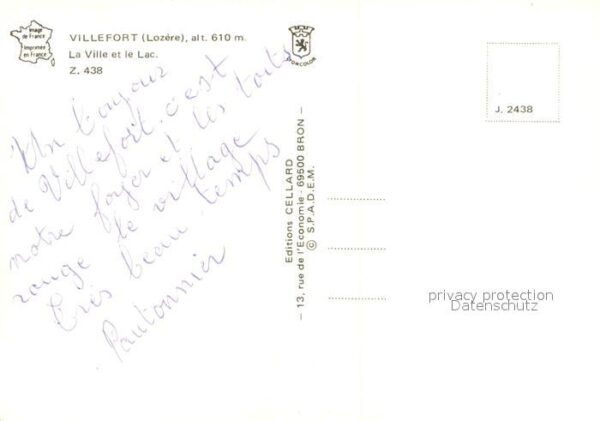 Image
de France
Imprimée
en France
VILLEFORT (Lozère), alt. 610 m.
La Ville et le Lac.
Z. 438
D'OR COLOR
J. 2438
Un bonjour
de Villefort. c'est
notre foyer et les toits
rouge le village
très beau temps
Pautonnier
Editions CELLARD
— 13, rue de l'Economie - 69500 BRON —
© S.P.A.D.E.M.
privacy protection
Datenschutz